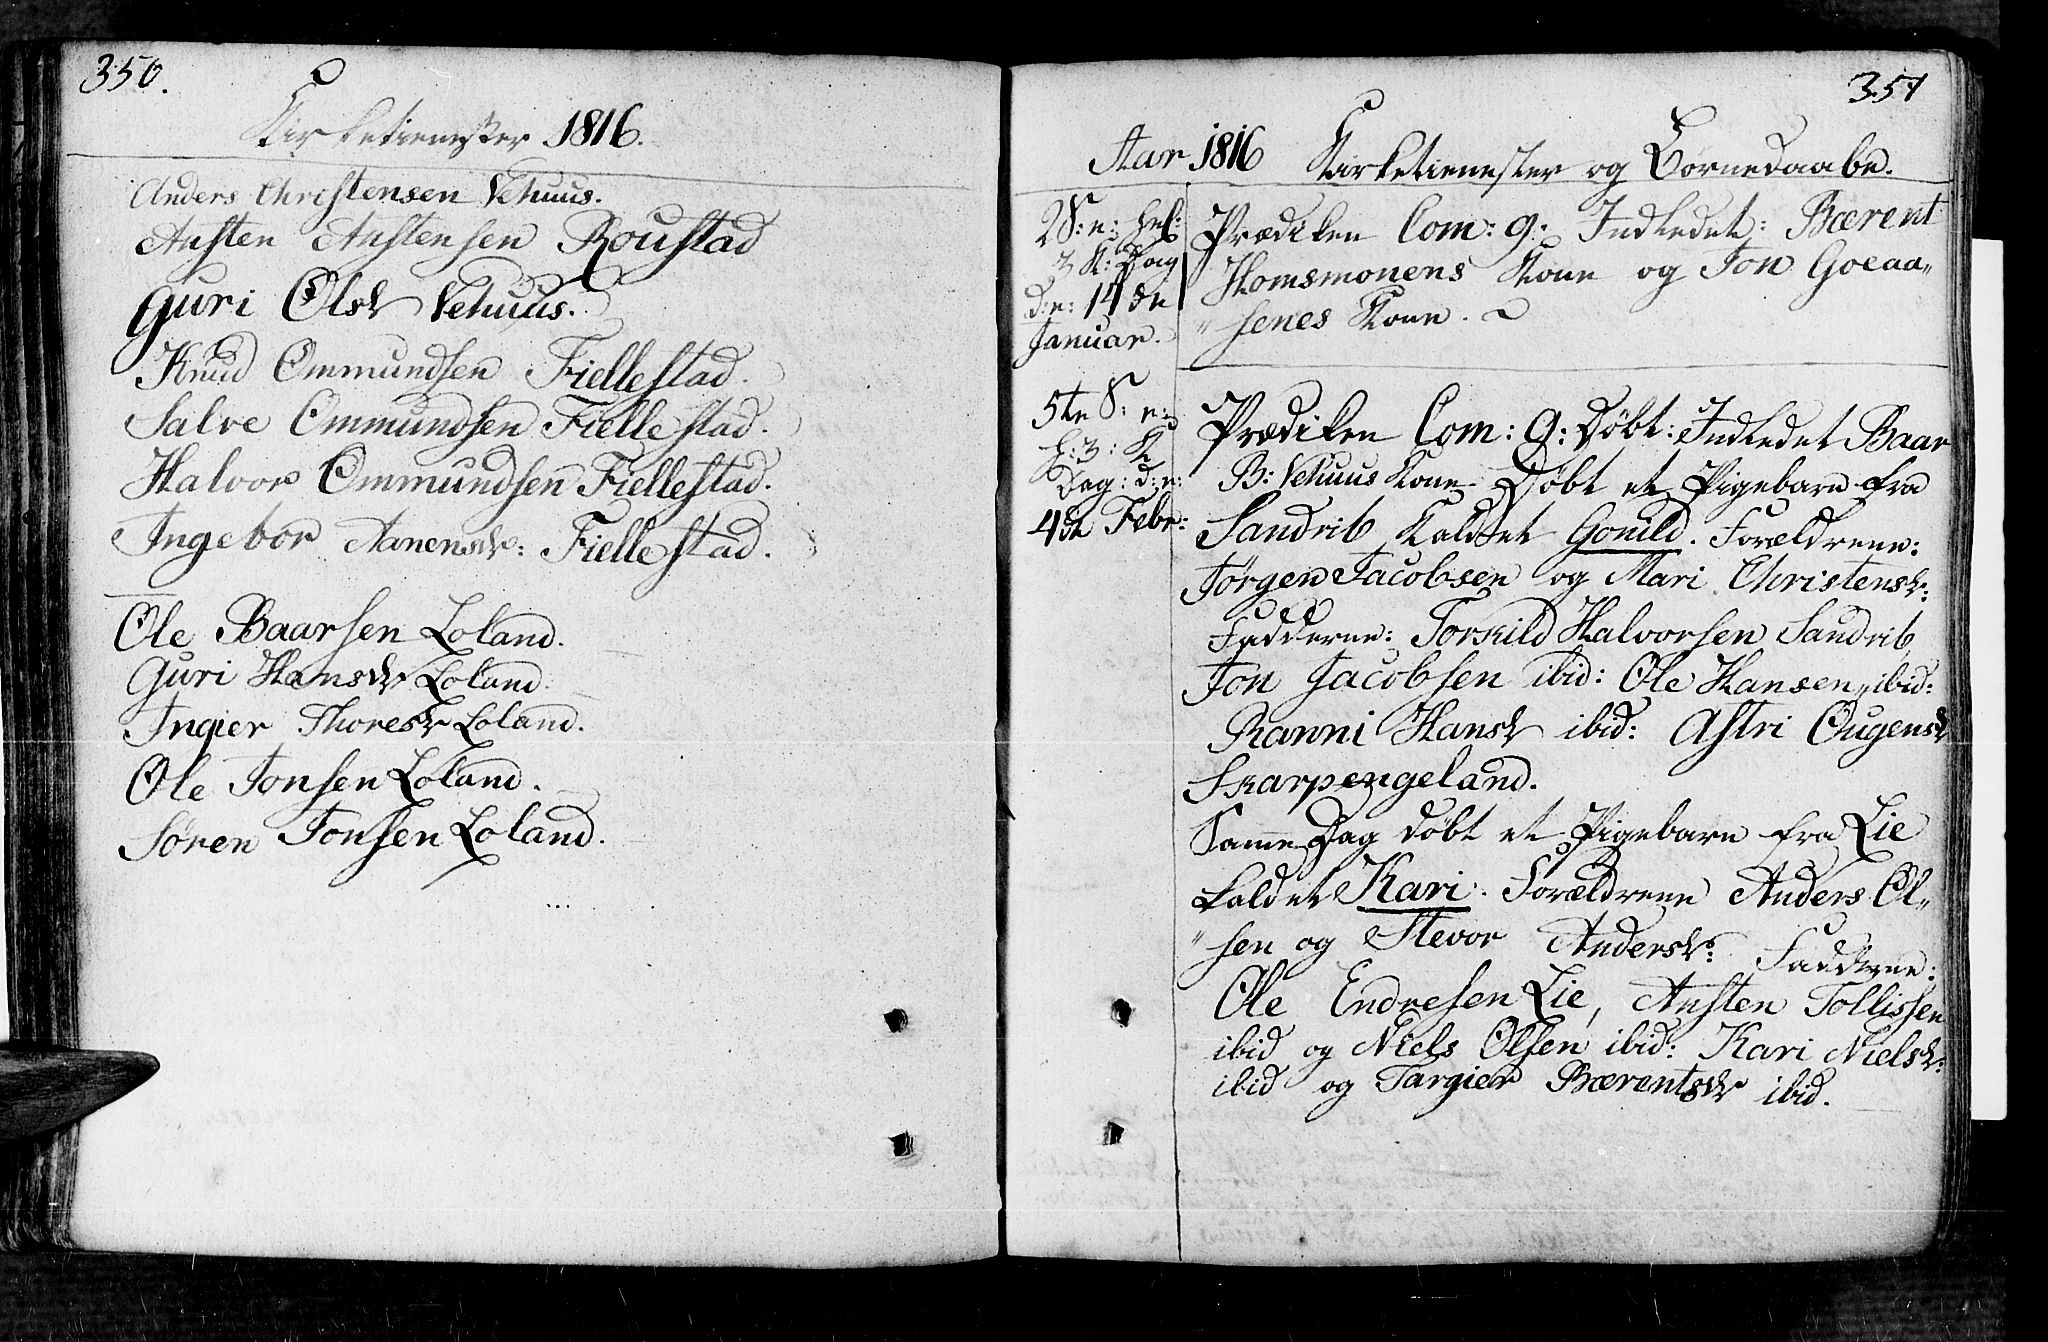 350.
Kirketienester 1816.
Anders Christensen Vehuus.
Austen Austensen Roustad
Guri Olsdr Vehuus.
Knud Ommundsen Fiellestad.
Salve Ommundsen Fiellestad.
Halvor Ommundsen Fiellestad.
Ingebor Aanensdr: Fiellestad.
Ole Baarsen Loland.
Guri Hansdr Loland.
Ingier Thoresdr Loland.
Ole Jonsen Loland.
Sören Jonsen Loland.
351
Aar 1816 Kirketienester og Börnedaabe.
2 S: e: Hel:
3 K: Dag
d:n: 14de
Januar.
Prædiken Com: g: Indledet: Bærent
Homsmonens Kone og Jon Goeaa„
„senes Kone.
5te S: e:
H: 3: K
Dag: d:n:
4de Febr:
Prædiken Com: g: Döbt: Indledet Baar
B: Vehuus Kone. Döbt et Pigebarn fra
Sandrib kaldet Gonild. Forældrene:
Jörgen Jacobsen og Mari Christensdr:
Fadderne: Torkild Halvorsen Sandrib,
Jon Jacobsen ibid: Ole Hansen ibid:
Ranni Hansdr ibid: Astri Ougensdr
Skarpengeland.
Samme Dag döbt et Pigebarn fra Lie
kaldet Kari. Forældrene Anders Ol„
„sen og Stevor Andersdr: Fadderne:
Ole Endresen Lie, Austen Tollissen
ibid og Niels Olsen ibid: Kari Nielsdr:
ibid og Targier Bærentsdr ibid.